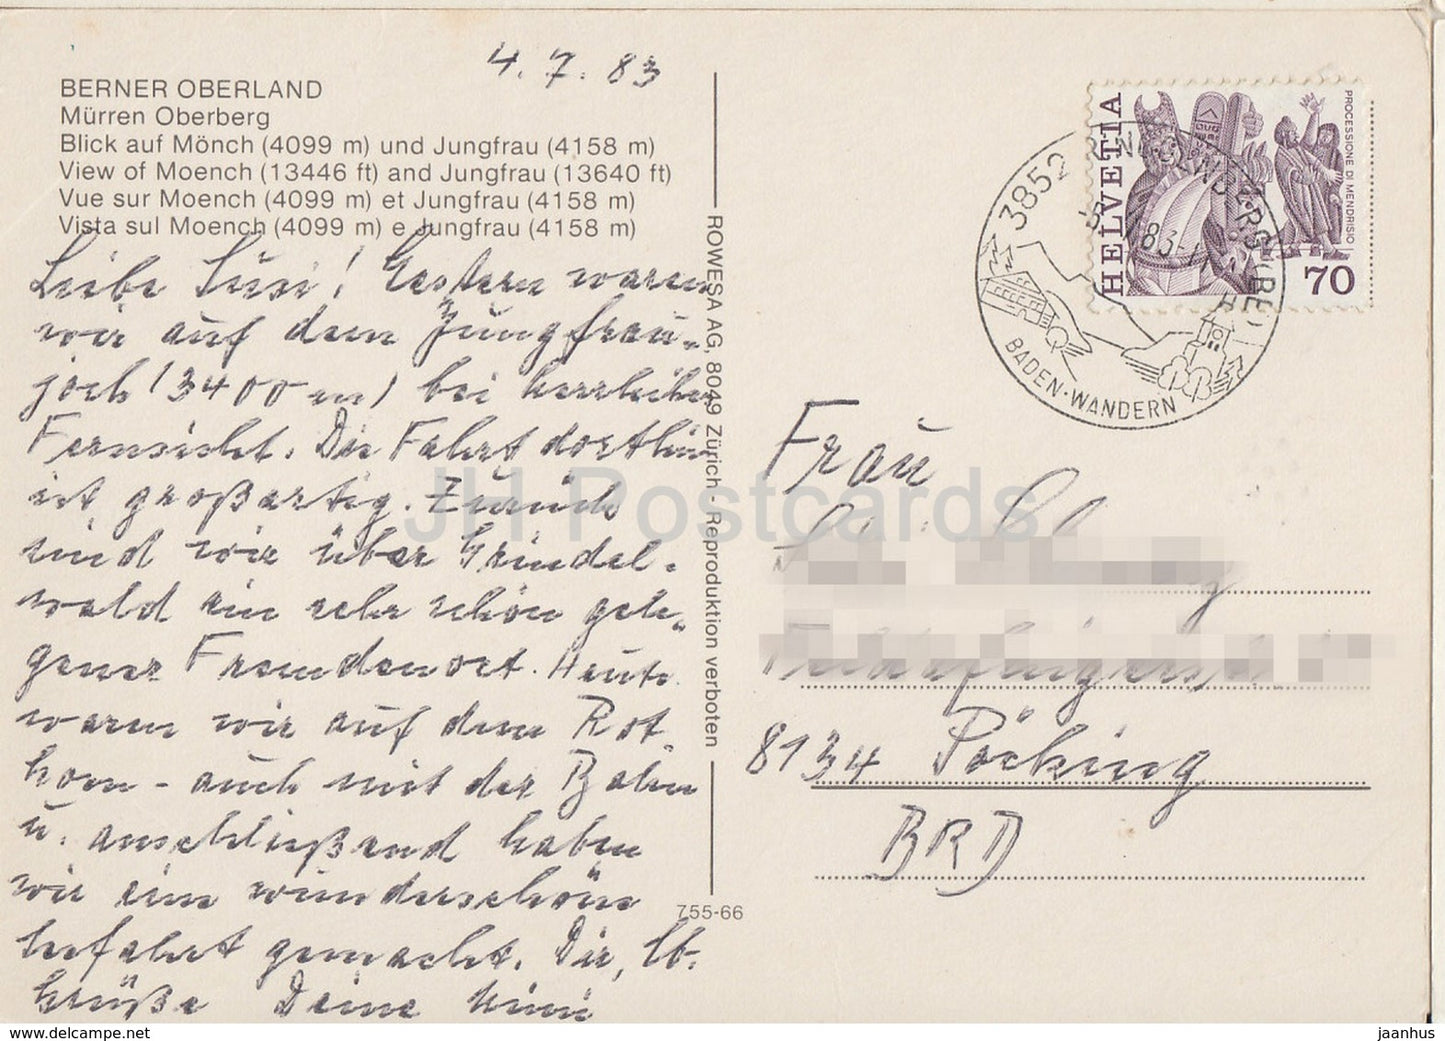 4. 7. 83
BERNER OBERLAND
Mürren Oberberg
Blick auf Mönch (4099 m) und Jungfrau (4158 m)
View of Moench (13446 ft) and Jungfrau (13640 ft)
Vue sur Moench (4099 m) et Jungfrau (4158 m)
Vista sul Moench (4099 m) e Jungfrau (4158 m)
Liebe Susi! Gestern waren
wir auf dem Jungfrau-
joch (3400 m) bei herrlicher
Fernsicht. Die Fahrt dorthin
ist großartig. Zurück
sind wir über Grindel-
wald ein sehr schön gele-
gener Fremdenort. Heute
waren wir auf dem Rot
horn - auch mit der Bahn
u. anschließend haben
wir eine wunderschöne
fahrt gemacht. Dir, lb.
Grüße Deine
ROWESA AG, 8049 Zürich - Reproduktion verboten
755-66
HELVETIA
PROCESSIONE DI MENDRISIO
70
3852 RINGGENBERG (BE)
83-11
BADEN·WANDERN
Frau
8134 Pöcking
BRD
JH Postcards
www.delcampe.net
jaanhus